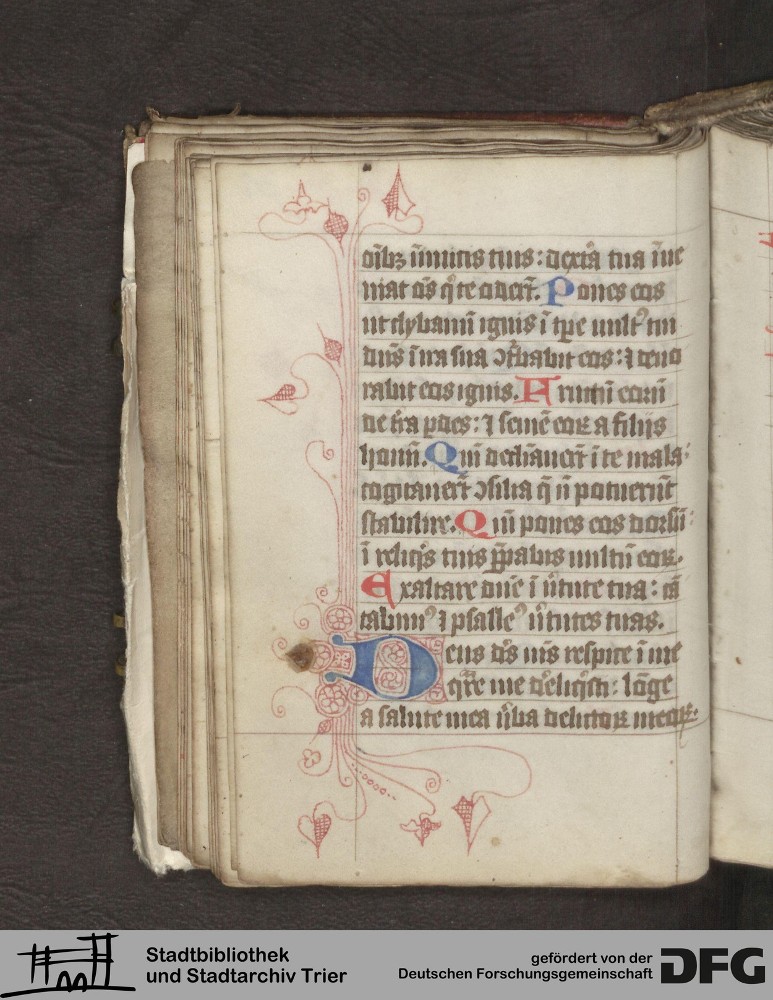 oībꝫ inimicis tuis : dext̄a tua īue
niat oēs q̄ te oderūt. Pones eos
ut clybanū ignis ī tꝑe vult⁹ tui
dn̄s ī ira sua ꝯt̾babit eos : ⁊ deuo
rabit eos ignis. Fructū eorū
de t̄ra ꝑdes : ⁊ semē eoꝝ a filiis
homī. Qm̄ declīauerūt ī te mala :
cogitauerūt ꝯsilia q̄ nō potuerūt
stabilire. Qm̄ pones eos dorsū :
ī reliq̄s tuis p̄parabis vultū eoꝝ.
Exaltare dn̄e ī v̾tute tua : cā
tabim⁹ ⁊ psallem⁹ v̾tutes tuas.
Deus ds̄ ms̄ respice ī me
q̄re me dereliq̄sti : lōge
a salute mea v̾ba delictoꝝ meoꝝ.
Stadtbibliothek
und Stadtarchiv Trier
gefördert von der
Deutschen Forschungsgemeinschaft
DFG